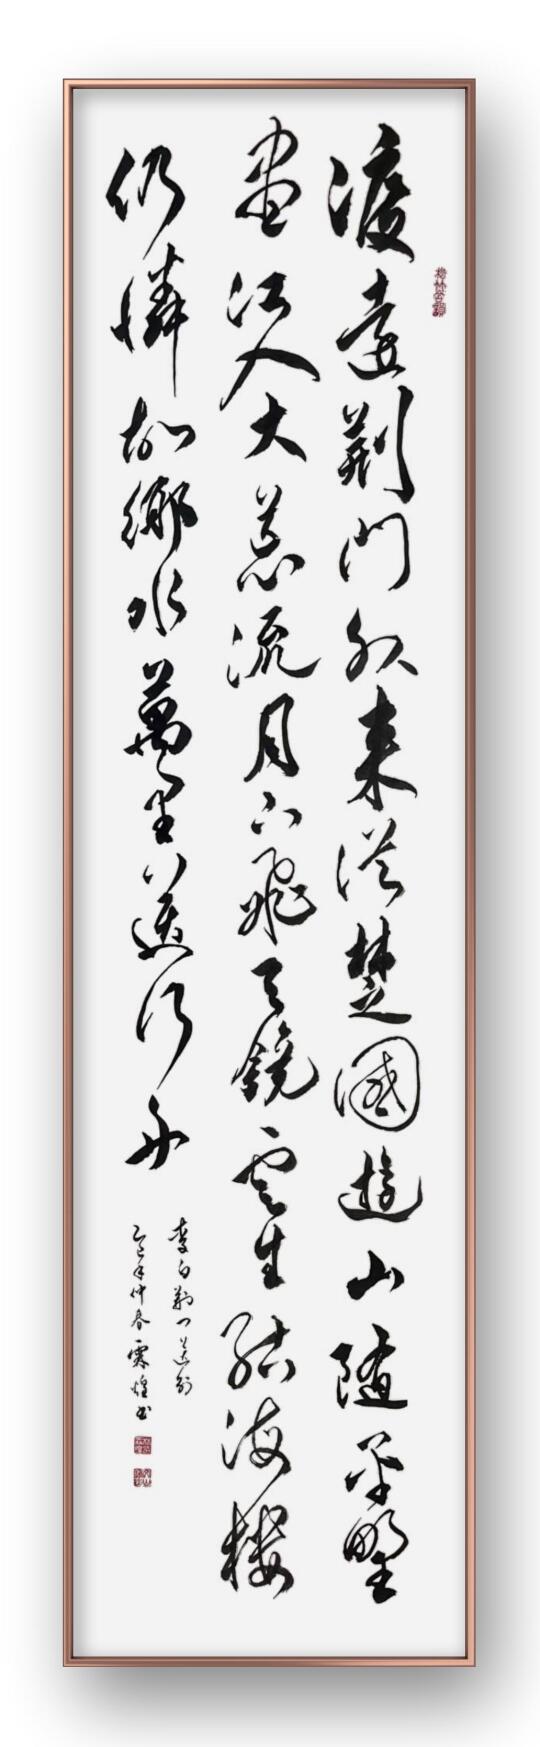 渡遠荆門外来從楚國遊山隨平野
盡江入大荒流月下飛天鏡雲生結海樓
仍憐故鄉水萬里送行舟
李白荆门送别
乙巳年仲春霖煌书